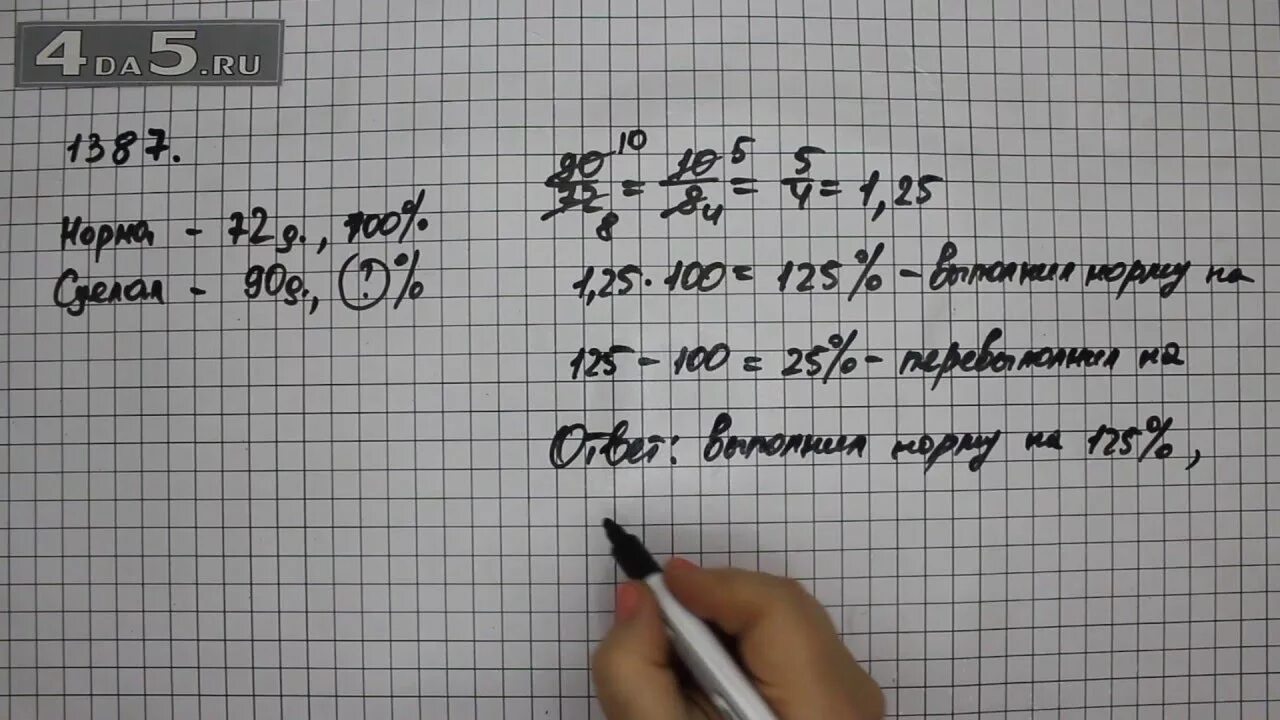 4DA5.RU
1387.
Норма - 72д., 100%
Сделал - 90д., (?)%
90/72 10 8 = 10/8 5 4 = 5/4 = 1,25
1,25 · 100 = 125% - выполнил норму на
125 - 100 = 25% - перевыполнил на
Ответ: выполнил норму на 125%,